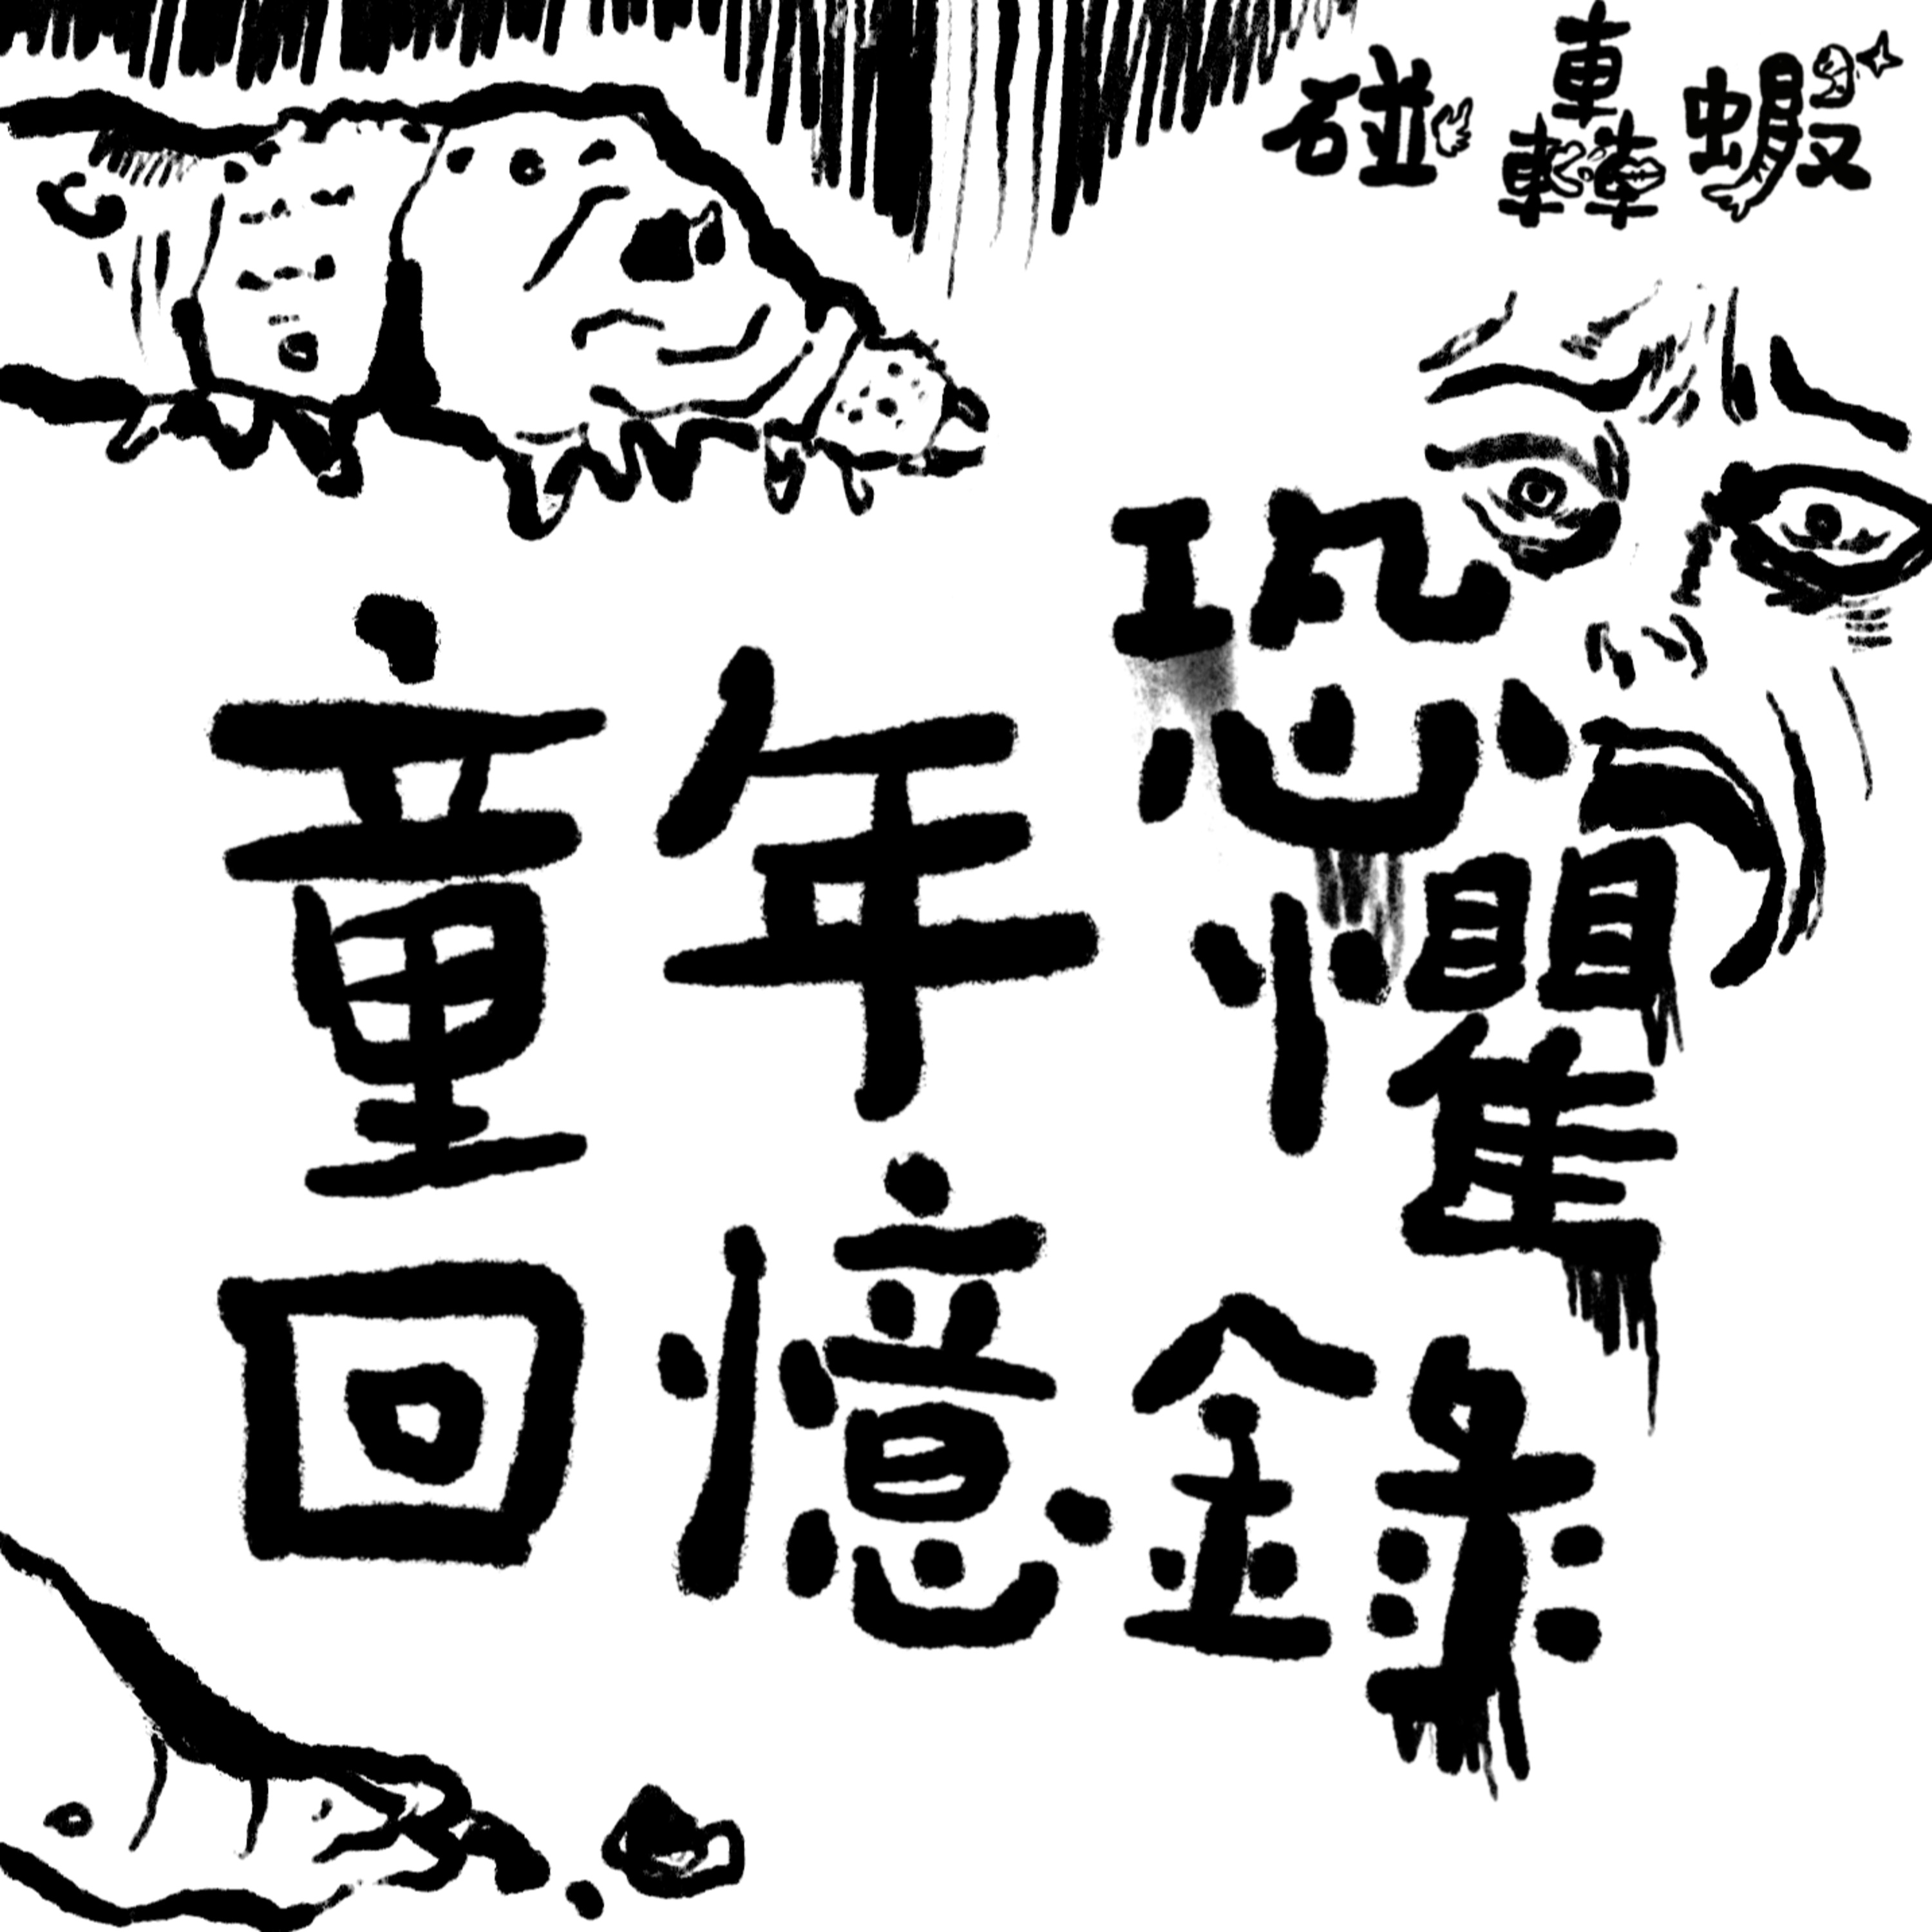 碰轟蝦
恐懼
童年
回憶錄